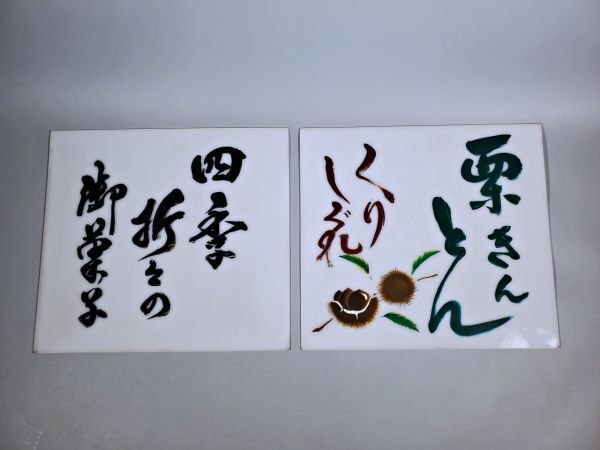 四季
折々の
御菓子
栗きん
とん
くり
しぐれ